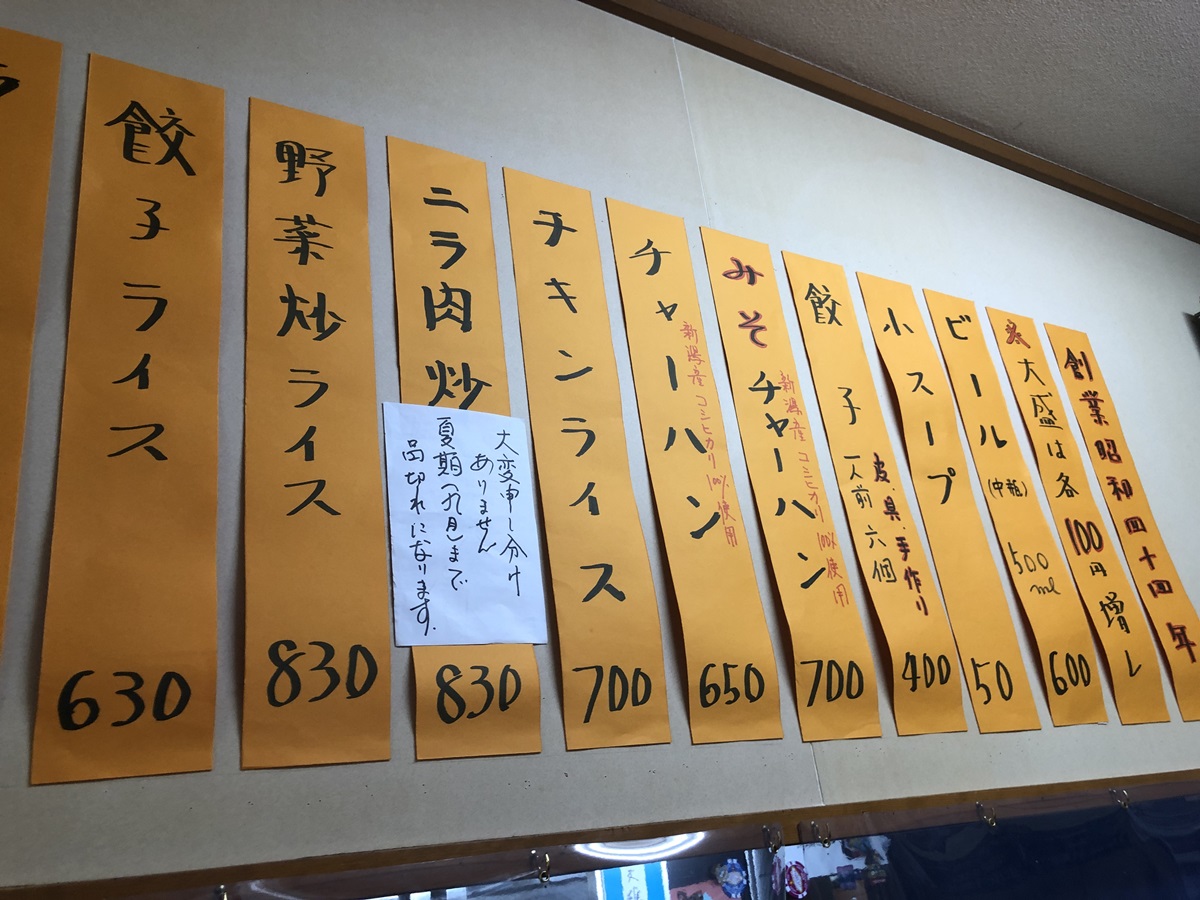 創業昭和四十四年
※大盛は各100円増し
ビール(中瓶)500ml 600
小スープ 50
餃子 一人前六個 400
皮、具、手作り
みそチャーハン 700
新潟産コシヒカリ100%使用
チャーハン 650
新潟産コシヒカリ100%使用
チキンライス 700
ニラ肉炒 830
大変申し分け
ありません
夏期(九月)まで
品切れになります.
野菜炒ライス 830
餃子ライス 630